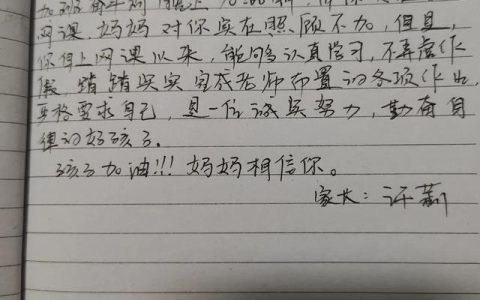 网课，妈妈对你实在照顾不加，但是，
你自上网课以来，能够认真学习，不弄虚作
假，踏踏实实完成老师布置的各项作业，
严格要求自己，是一位诚实努力，勤奋自
律的好孩子。
孩子加油!!! 妈妈相信你。
家长：许